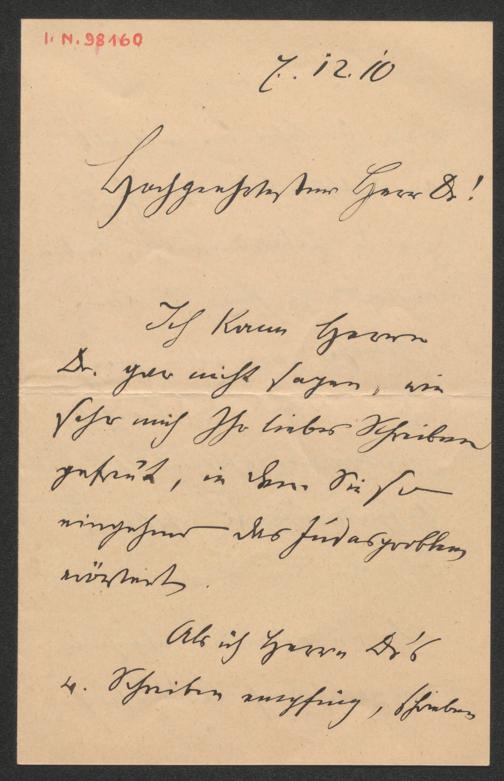 I. N. 98160
7. 12. 10
Hochgeehrtester Herr Dr!
Ich kann Herrn
Dr. gar nicht sagen, wie
sehr mich Ihr liebes Schreiben
gefreut, in dem Sie so
eingehend das Judasproblem
erörtert.
Als ich Herrn Dr's
w. Schreiben empfing, schrieben